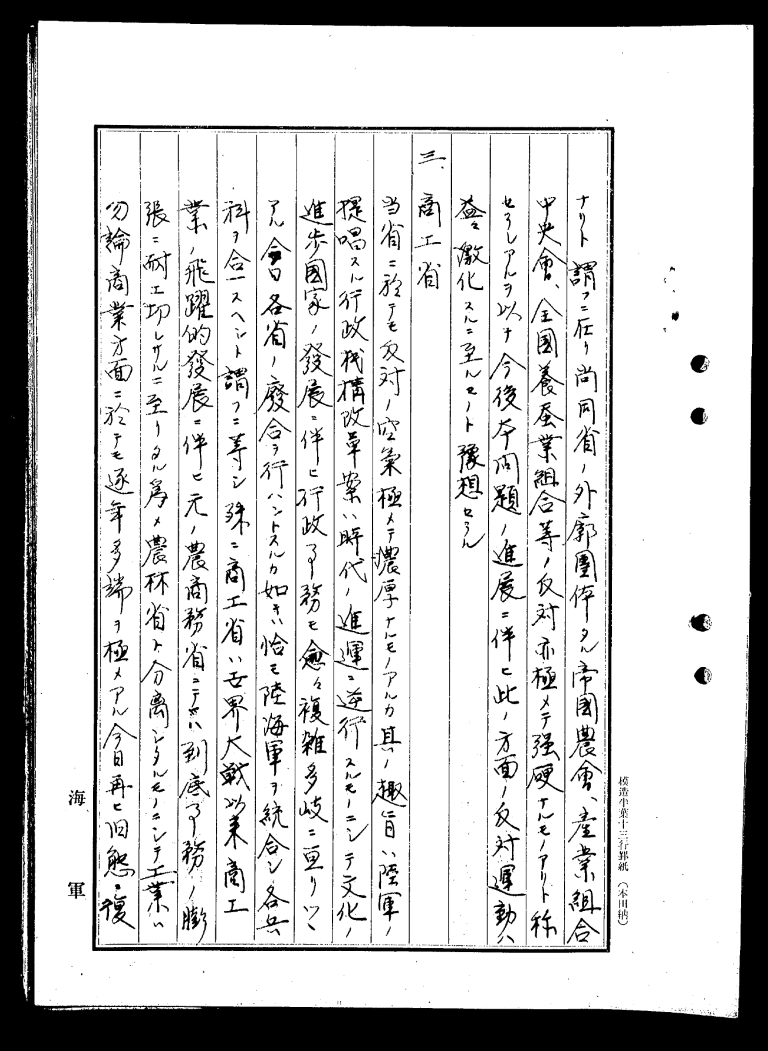 ナリト謂フニ在リ尚同省ノ外廓團体タル帝國農會、産業組合
中央會、全國養蚕業組合等ノ反対亦極メテ强硬ナルモノアリト称
セラレアルヲ以テ今後本問題ノ進展ニ伴ヒ此ノ方面ノ反対運動ハ
益々激化スルニ至ルモノト豫想セラル
三、商工省
当省ニ於テモ反対ノ空氣極メテ濃厚ナルモノアルカ其ノ趣旨ハ陸軍ノ
提唱スル行政機構改革案ハ時代ノ進運ニ逆行スルモノニシテ文化ノ
進歩國家ノ發展ニ伴ヒ行政事務モ愈々複雑多岐ニ亘リツヽ
アル今日各省ノ廢合ヲ行ハントスルカ如キハ恰モ陸海軍ヲ統合シ各兵
科ヲ合一スヘシト謂フニ等シ殊ニ商工省ハ世界大戦以来商工
業ノ飛躍的發展ニ伴ヒ元ノ農商務省ニテハ到底事務ノ膨
張ニ耐エ切レサルニ至リタル為メ農林省ト分离シタルモノニシテ工業ハ
勿論商業方面ニ於テモ逐年多端ヲ極メアル今日再ヒ旧態ニ復
海軍
模造半葉十三行罫紙（本田納）